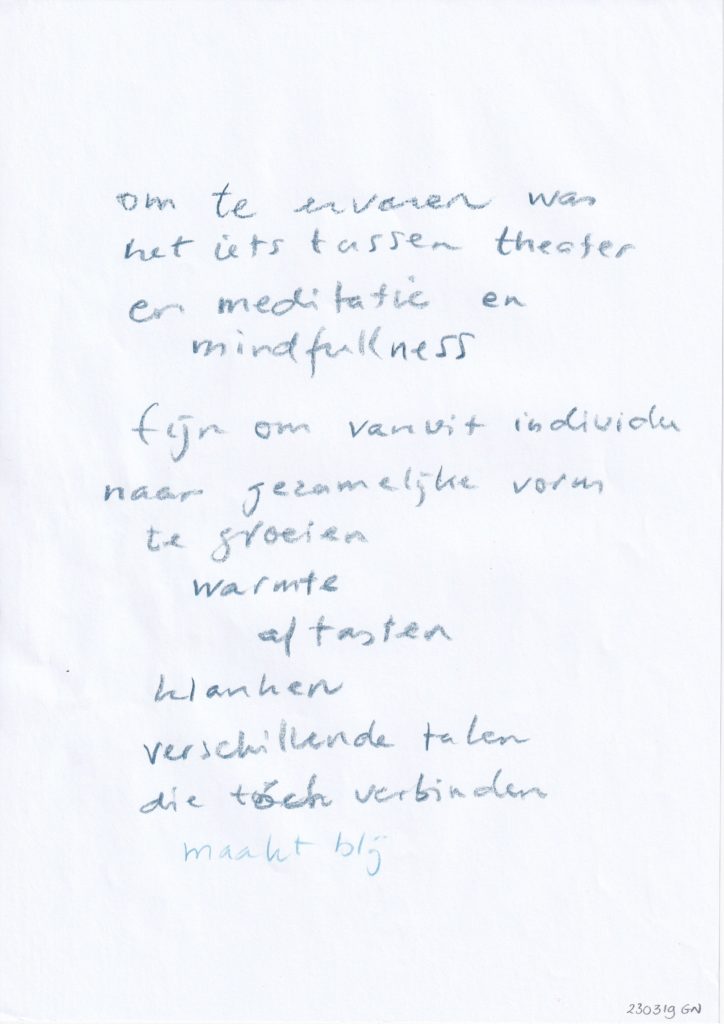 om te ervaren was
het iets tussen theater
en meditatie en
mindfullness
fijn om vanuit individu
naar gezamelijke vorm
te groeien
warmte
aftasten
klanken
verschillende talen
die tóch verbinden
maakt blij
230319 GN